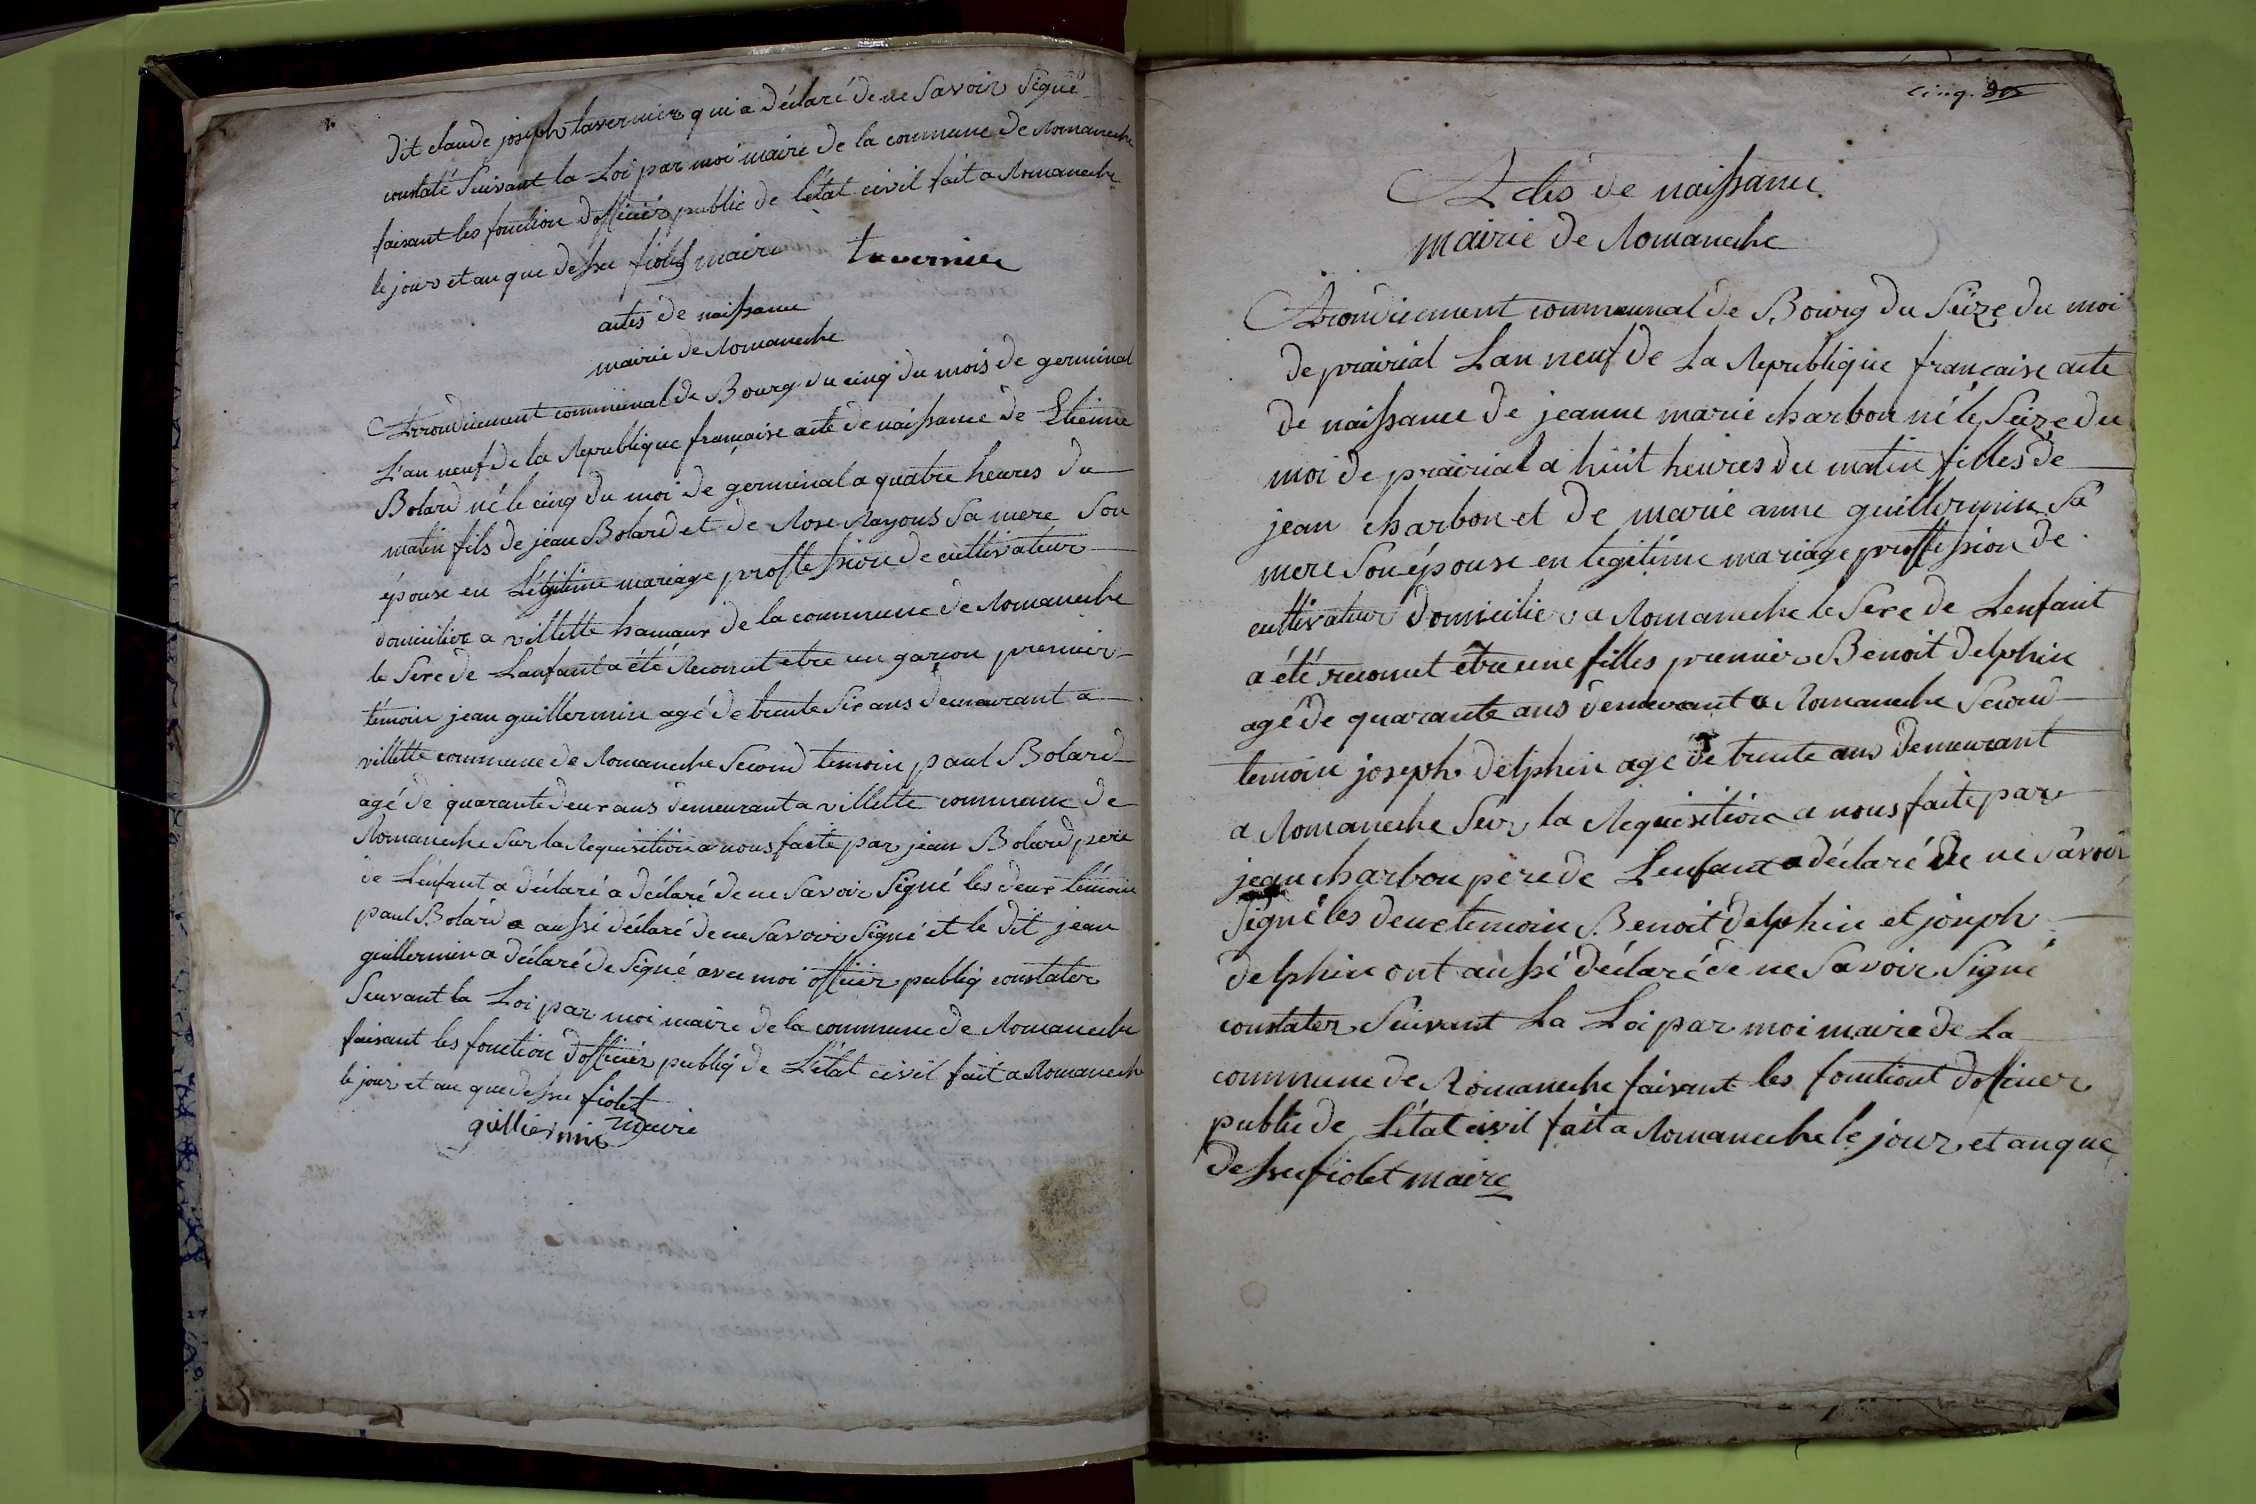 dit claude joseph tavernier qui a déclaré de ne savoir signé
constaté suivant la Loi par moi maire de la commune de Romaneche
faisant les fonction dofficier public de létat civil fait a Romaneche
le jour et an que dessu fiolet maire tavernier
actes de naissance
mairie de Romaneche
Arrondicement communal de Bourg du cinq du mois de germinal
L'an neuf de la Republique française acte de naissance de Etienne
Bolard né le cinq du moi de germinal a quatre heures du
matin fils de jean Bolard et de Rose Rayons sa mere son
épouse en Légitime mariage proffession de cultivateur
domicilier a villette hamaux de la commune de Romaneche
le sexe de Lanfant a été Reconut etre un garcon premier
témoin jean guillermin agé de trente six ans demeurant a
villette commune de Romaneche second temoin paul Bolard
agé de quarante deux ans demeurant a villette commune de
Romaneche sur la Requisition a nous faite par jean Bolard pere
de L'enfant a déclaré a déclaré de ne savoir signé les deux témoin
paul Bolard a aussi déclaré de ne savoir signé et le dit jean
guillermin a déclaré de signé avec moi officier publiq constater
suivant la Loi par moi maire de la commune de Romaneche
faisant les fonction dofficier publiq de L'état civil fait a Romaneche
le jour et an que dessu fiolet
guillermin maire
cinq.
Actes de naissance
mairie de Romaneche
Arrondicement communal de Bourg du seize du moi
de prairial Lan neuf de La Republique francaise acte
de naissance de jeanne marie charbon né le seize du
moi de prairial a huit heures du matin filles de
jean charbon et de marie anne guillermin sa
mere son épouse en legitime mariage proffession de
cultivateur domicilier a Romaneche le sexe de Lenfant
a été reconut être une filles premier Benoit delphin
agé de quarante ans demeurant a Romaneche second
temoin joseph delphin agé de trente ans demeurant
a Romaneche sur la Requisition a nous faite par
jean charbon pere de Lenfant a déclaré de ne savoir
signé les deux temoin Benoit delphin et joseph
delphin ont aussi déclaré de ne savoir signé
constater suivant La Loi par moi maire de La
commune de Romaneche faisant les fonctiont dofficier
public de L'état civil fait a Romaneche le jour et an que
dessu fiolet maire